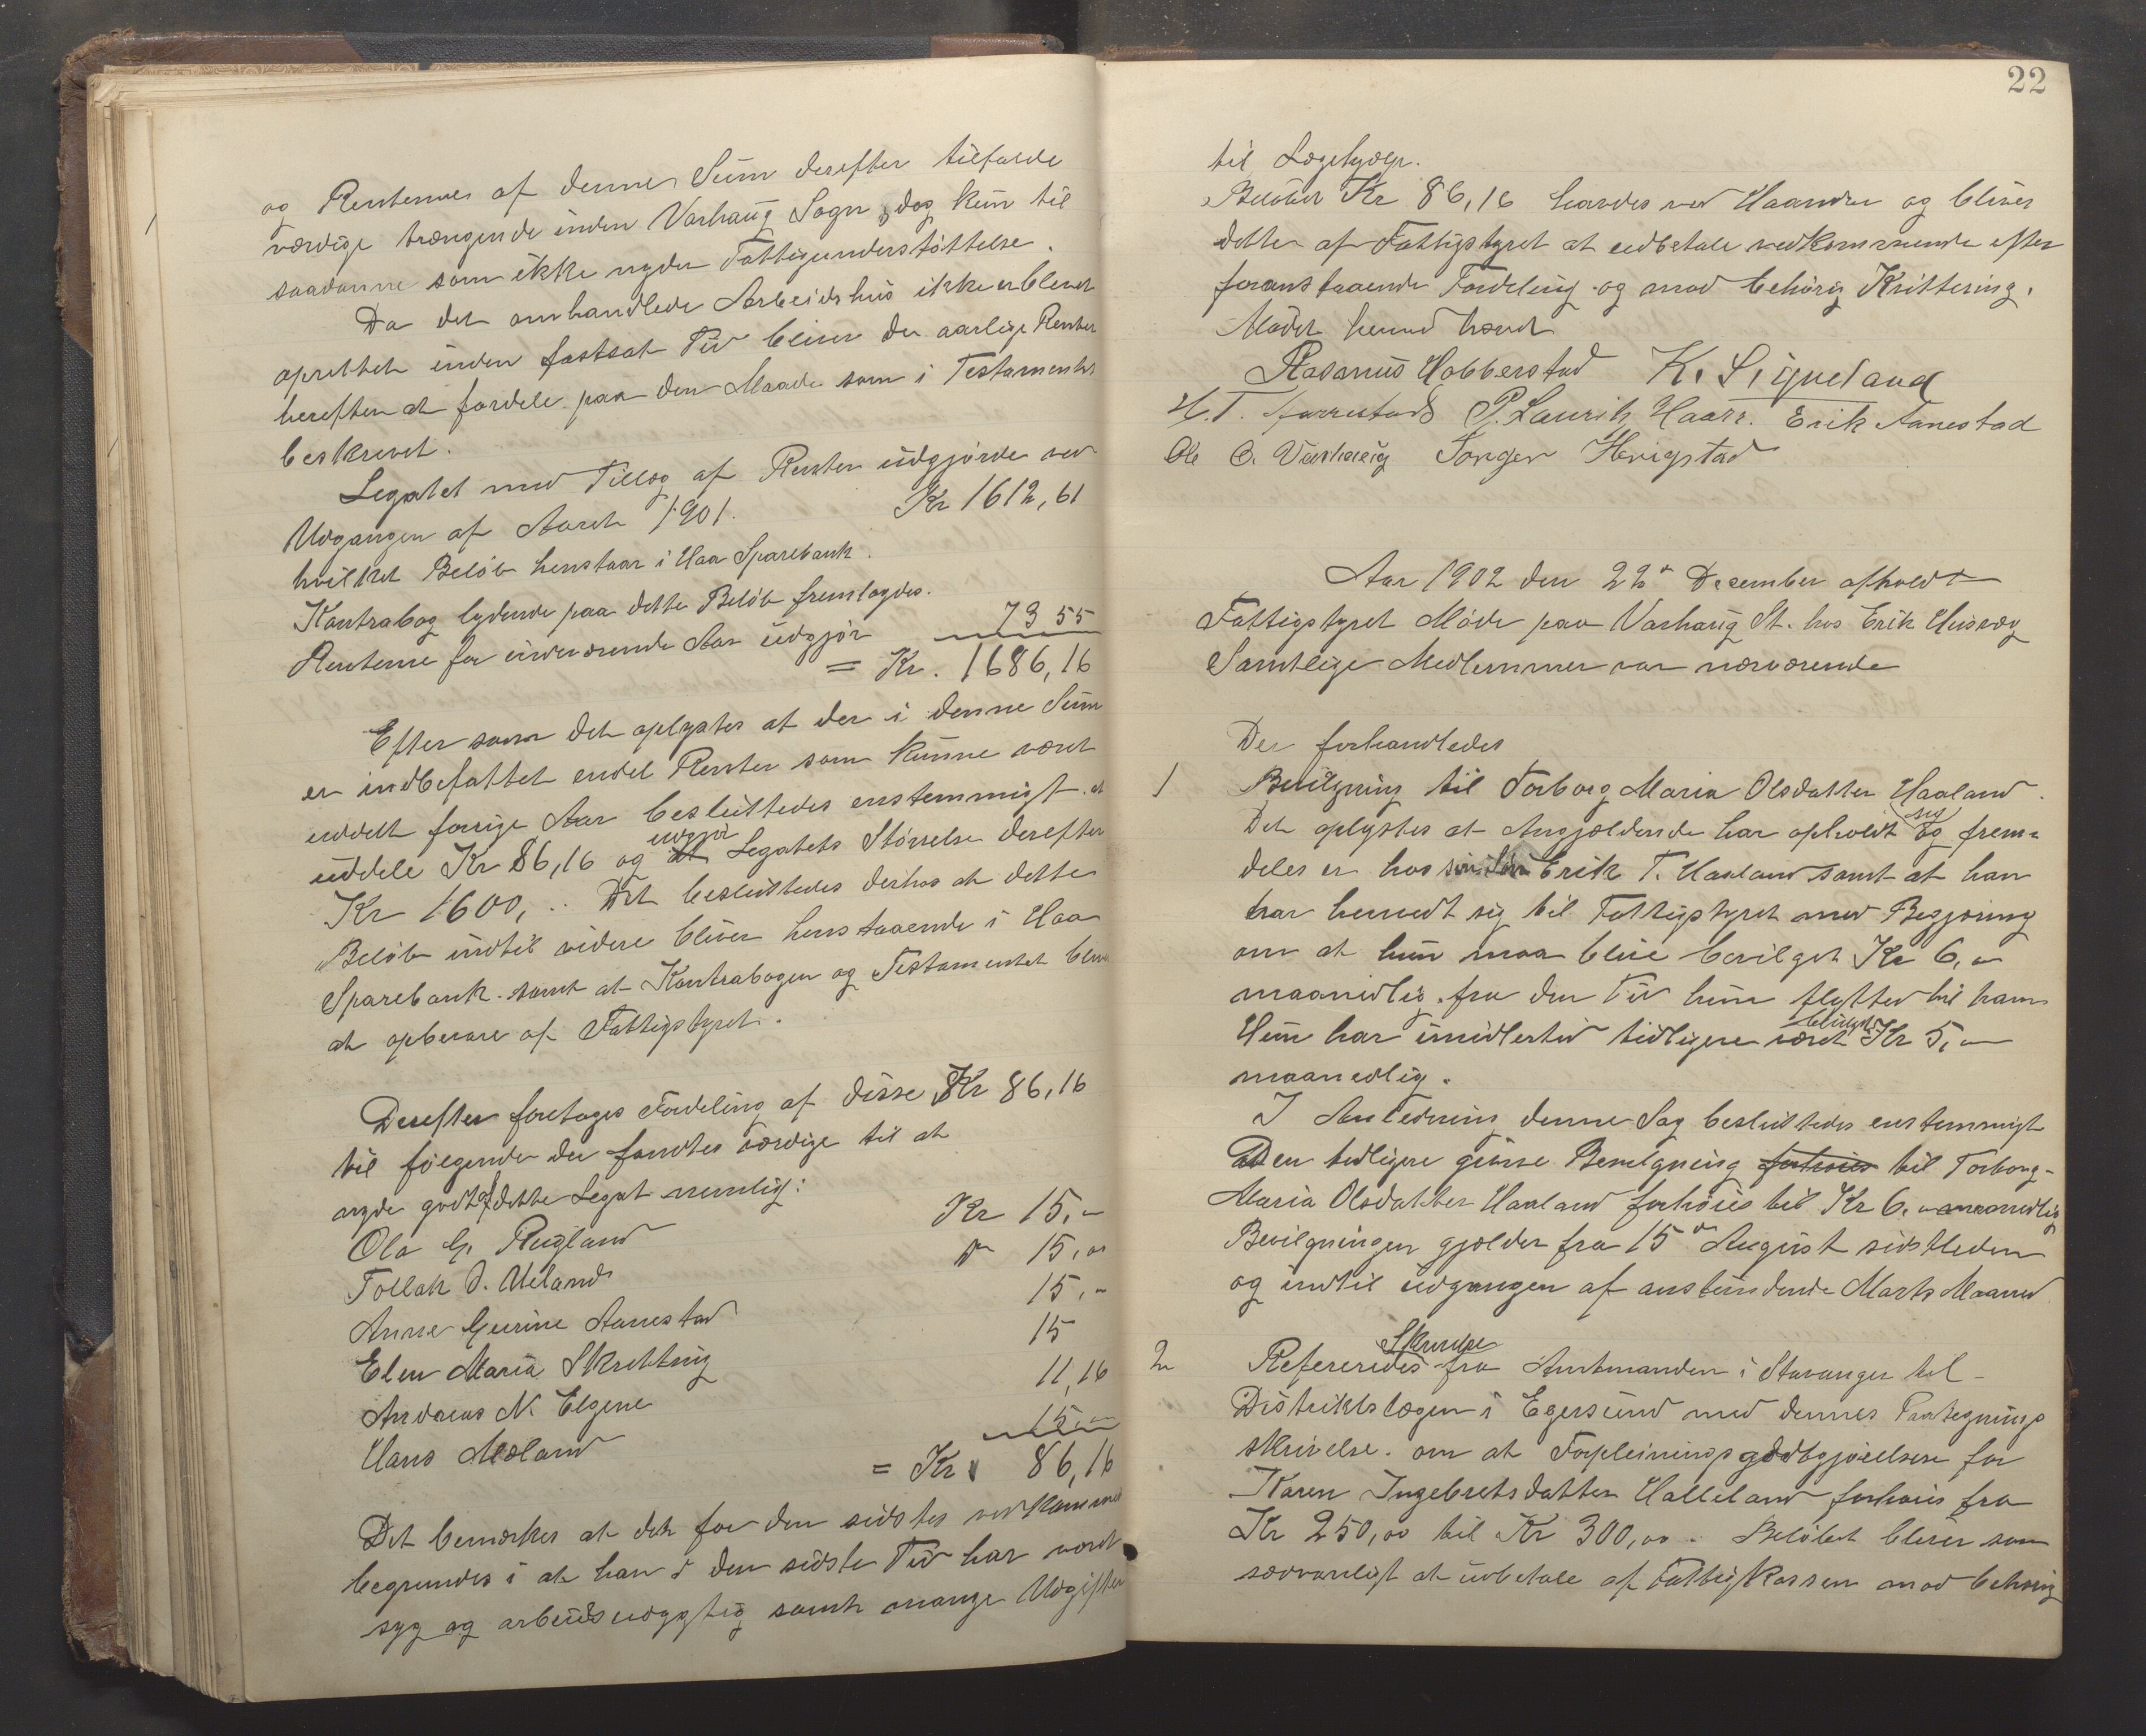 og Renterne af denne Sum derefter tilfalde
værdige trængende inden Varhaug Sogn, dog kun til
saadanne som ikke nyder Fattigunderstøttelse.
Da det omhandlede Arbeidshus ikke er blevet
oprettet inden fastsat Tid bliver de aarlige Renter
herefter at fordele paa den Maade som i Testamentet
beskrevet.
Legatet med Tillæg af Renter udgjorde ved
Udgangen af Aaret 1901. Kr 1612,61
hvilket Beløb henstaar i Haa Sparebank.
Kontrabog lydende paa dette Beløb fremlagdes.
Renterne for indeværende Aar udgjør 73 55
= Kr. 1686,16
Efter som det oplystes at der i denne Sum
er indbefattet endel Renter som kunne været
uddelt forrige Aar besluttedes enstemmigt at
uddele Kr 86,16 og udgjør Legatets Størrelse derefter
Kr 1600, .. Det besluttedes derhos at dette
Beløb indtil videre bliver henstaaende i Haa
Sparebank. samt at Kontrabogen og Testamentet bliver
at opbevare af Fattigstyret.
Derefter foretages Fordeling af disse Kr 86,16
til følgende der fandtes værdige til at
nyde godt af dette Legat nemlig:
Ola G. Rugland Kr 15,-
Tollak J. Ueland " 15,00
Anne Gurine Aanestad 15,-
Elen Maria Skretting 15
Andreas N. Elgene 11,16
Hans Mæland 15,-
= Kr 86,16
Det bemærkes at det for den sidstes vedkommende
begrundes i at han i den sidste Tid har været
syg og arbeidsudygtig samt mange Udgifter
22
til Lægehjælp.
Beløbet Kr 86,16 havdes ved Haanden og bliver
dette af Fattigstyret at udbetale vedkommende efter
foranstaaende Fordeling og mod behørig Kvittering.
Mødet hermed hævet
Rasmus Hobberstad K. Sigveland
H. T. Aarrestad P. Laurits Haarr. Erik Aanestad
Ole O. Varhaug Torger Herigstad
Aar 1902 den 22de December afholdt
Fattigstyret Møde paa Varhaug St. hos Erik Husvæg
Samtlige Medlemmer var nærværende
Der forhandledes
1 Bevilgning til Torborg Maria Olsdatter Haaland.
Det oplystes at Angjældende har opholdt sig og frem-
deles er hos sin Søn Erik T. Haaland samt at han
har henvendt sig til Fattigstyret med Begjæring
om at hun maa blive bevilget Kr 6,-
maanedlig fra den Tid hun flyttet til ham
Hun har imidlertid tidligere været bevilget Kr 5,-
maanedlig.
I Anledning denne Sag besluttedes enstemmigt
Den tidligere givne Bevilgning forhøies til Torborg-
Maria Olsdatter Haaland forhøies til Kr 6.- maanedlig
Bevilgningen gjælder fra 15de August sidstleden
og indtil udgangen af anstundende Marts Maaned.
2 Refereredes Skrivelse fra Amtmanden i Stavanger til
Distriktslægen i Egersund med dennes Paategnings
skrivelse. om at Forpleiningsgodtgjørelsen for
Karen Ingebretsdatter Halleland forhøies fra
Kr 250,00 til Kr 300,00.. Beløbet bliver som
sædvanligt at udbetale af Fattigkassen mod behørig